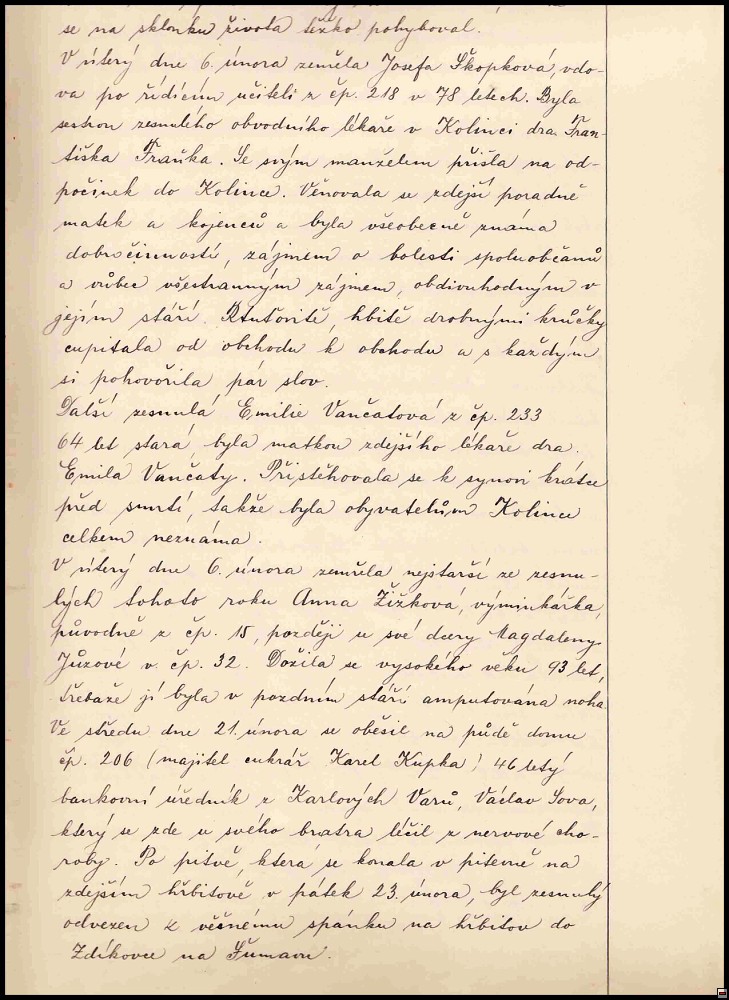 se na sklonku života těžko pohyboval.
V úterý dne 6. února zemřela Josefa Škopková, vdo-
va po řídícím učiteli z čp. 218 v 78 letech. Byla
sestrou zesnulého obvodního lékaře v Kolinci dra. Fran-
tiška Fraňka. Se svým manželem přišla na od-
počinek do Kolince. Věnovala se zdejší poradně
matek a kojenců a byla všeobecně známa
dobročinností, zájmem o bolesti spoluobčanů
a vůbec všestranným zájmem, obdivuhodným v
jejím stáří. Rtuťovitě hbitě drobnými krůčky
cupitala od obchodu k obchodu a s každým
si pohovořila pár slov.
Další zesnulá Emilie Vančatová z čp. 233
64 let stará, byla matkou zdejšího lékaře dra.
Emila Vančaty. Přistěhovala se k synovi krátce
před smrtí, takže byla obyvatelům Kolince
celkem neznáma.
V úterý dne 6. února zemřela nejstarší ze zesnu-
lých tohoto roku Anna Žižková, výminkářka,
původně z čp. 15, později u své dcery Magdaleny
Jůzové v čp. 32. Dožila se vysokého věku 93 let,
třebaže jí byla v pozdním stáří amputována noha.
Ve středu dne 21. února se oběsil na půdě domu
čp. 206 (majitel cukrář Karel Kupka) 46 letý
bankovní úředník z Karlových Varů, Václav Sova,
který se zde u svého bratra léčil z nervové cho-
roby. Po pitvě, která se konala v pitevně na
zdejším hřbitově v pátek 23. února, byl zesnulý
odvezen k věčnému spánku na hřbitov do
Zdíkovce na Šumavu.